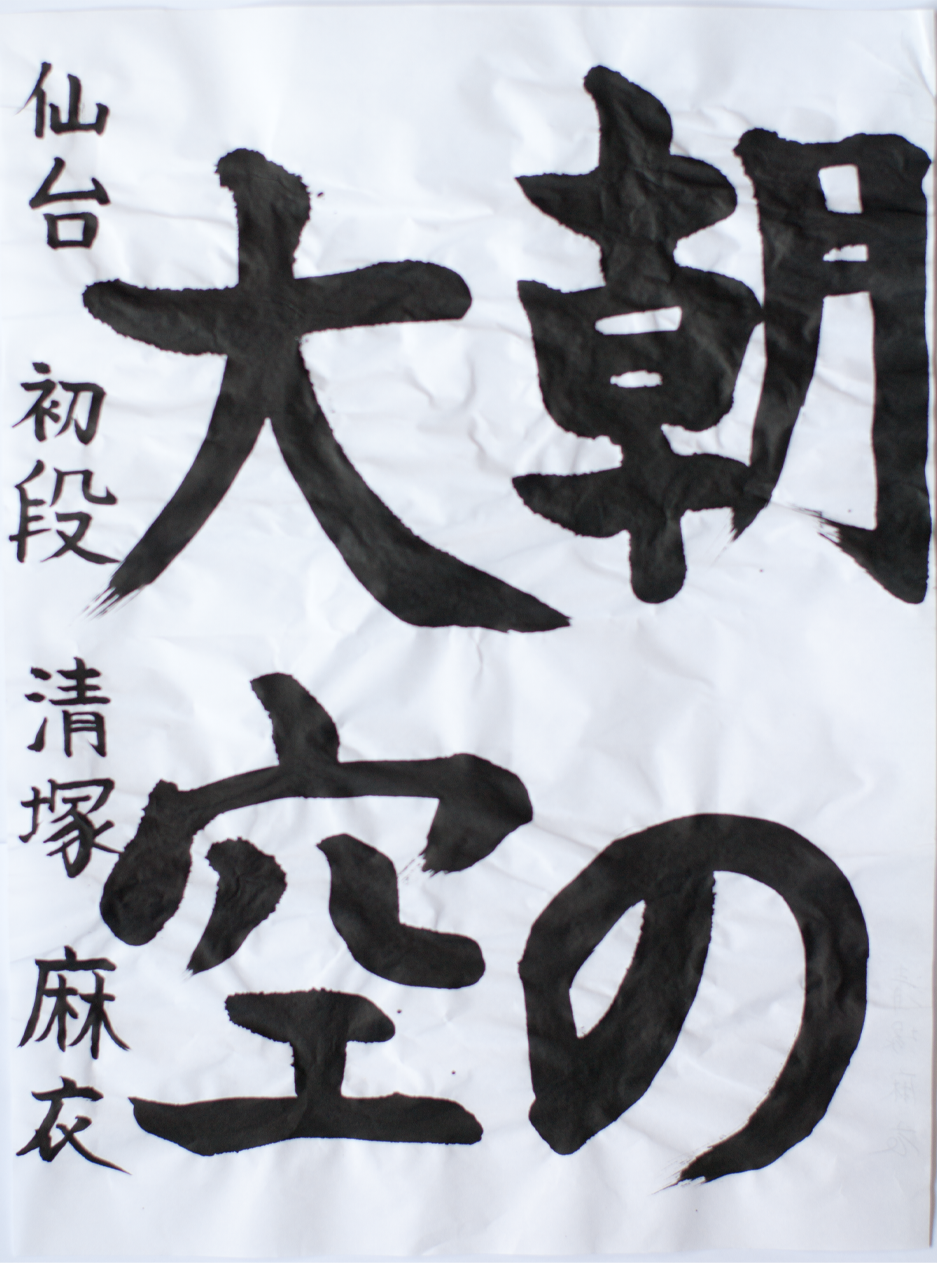 朝の
大空
仙台 初段 清塚 麻衣